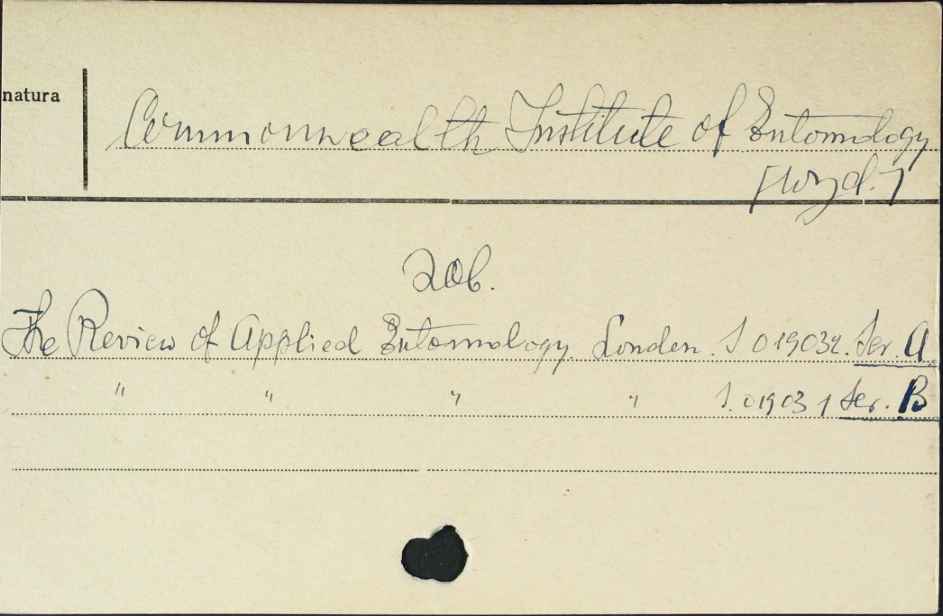 natura
Commonwealth Institute of Entomology
[wyd.]
Zob.
The Review of Applied Entomology London. S 019032. Ser. A
" " " " S. 019031 Ser. B